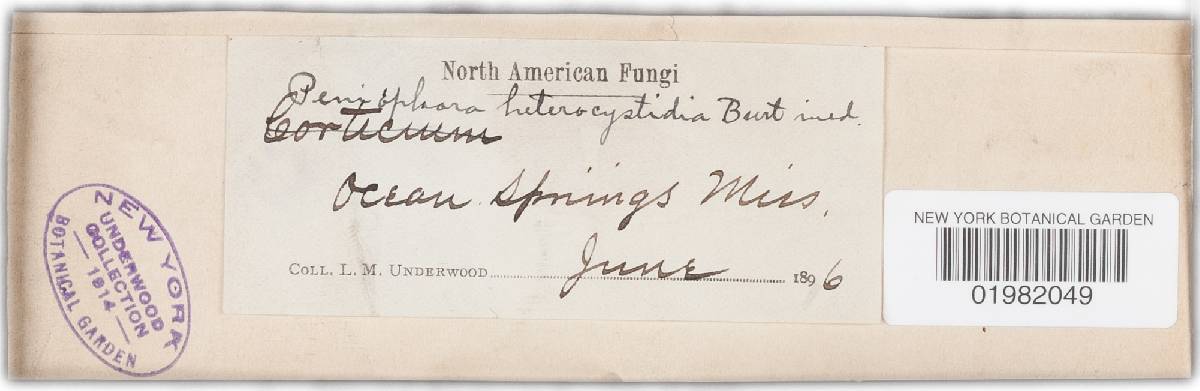 North American Fungi
Peniophora heterocystidia Burt ined.
Corticium
Ocean Springs Miss.
COLL. L. M. UNDERWOOD June 1896
NEW YORK
UNDERWOOD
COLLECTION
— 1914 —
BOTANICAL GARDEN
NEW YORK BOTANICAL GARDEN
01982049